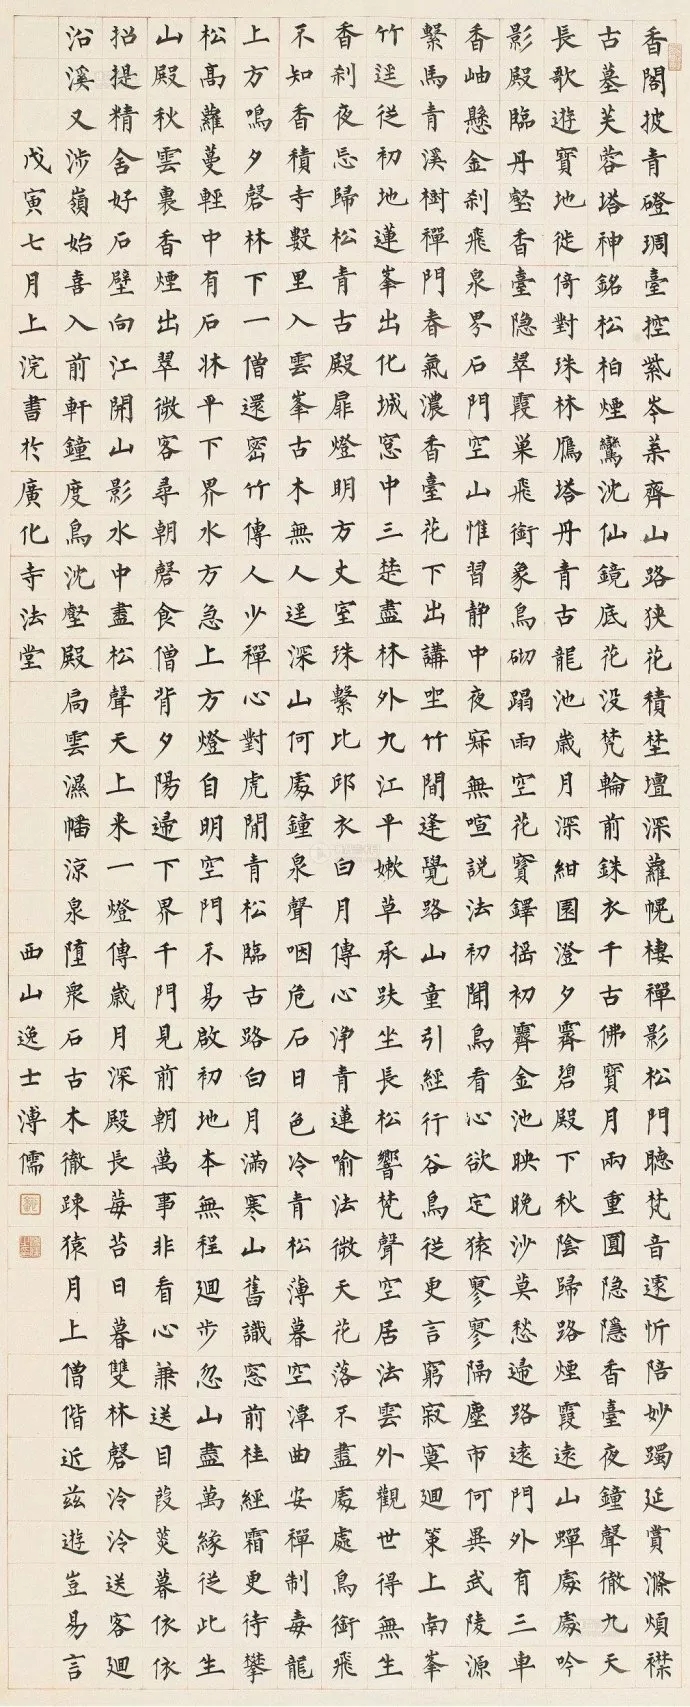 香閣披青磴琱臺控紫岑葉齊山路狹花積埜壇深蘿幌棲禪影松門聽梵音遠忻陪妙躅延賞滌煩襟
古墓芙蓉塔神銘松柏煙鸞沈仙鏡底花没梵輪前銖衣千古佛寶月兩重圓隐隱香臺夜鐘聲徹九天
長歌遊寶地徙倚對珠林鴈塔丹青古龍池歲月深紺園澄夕霽碧殿下秋陰歸路煙霞遠山蟬處處吟
影殿臨丹壑香臺隐翠霞巢飛銜象鳥砌蹋雨空花寶鐸摇初霽金池映晚沙莫愁歸路遠門外有三車
香岫懸金刹飛泉界石門空山惟習静中夜寂無喧說法初聞鳥看心欲定猿寥寥隔塵市何異武陵源
繫馬青溪樹禪門春氣濃香臺花下出講坐竹間逢覺路山童引經行谷鳥從更言窮寂寞迴策上南峯
竹逕從初地蓮峯出化城窓中三楚盡林外九江平嫰草承趺坐長松響梵聲空居法雲外觀世得無生
香刹夜忘歸松青古殿扉燈明方丈室珠繫比邱衣白月傳心浄青蓮喻法微天花落不盡處處鳥銜飛
不知香積寺數里入雲峯古木無人逕深山何處鐘泉聲咽危石日色冷青松薄暮空潭曲安禪制毒龍
上方鳴夕磬林下一僧還密竹傳人少禪心對虎閒青松臨古路白月滿寒山舊識窓前桂經霜更待攀
松高蘿蔓輕中有石牀平下界水方急上方燈自明空門不易啟初地本無程迴步忽山盡萬緣從此生
山殿秋雲裏香煙出翠微客尋朝磬食僧背夕陽歸下界千門見前朝萬事非看心兼送目葭菼暮依依
招提精舍好石壁向江開山影水中盡松聲天上来一燈傳歲月深殿長莓苔日暮雙林磬泠泠送客廻
沿溪又涉嶺始喜入前軒鐘度鳥沈壑殿扃雲濕幡涼泉墮衆石古木徹疎猿月上僧偕近茲遊豈易言
戊寅七月上浣書於廣化寺法堂 西山逸士溥儒